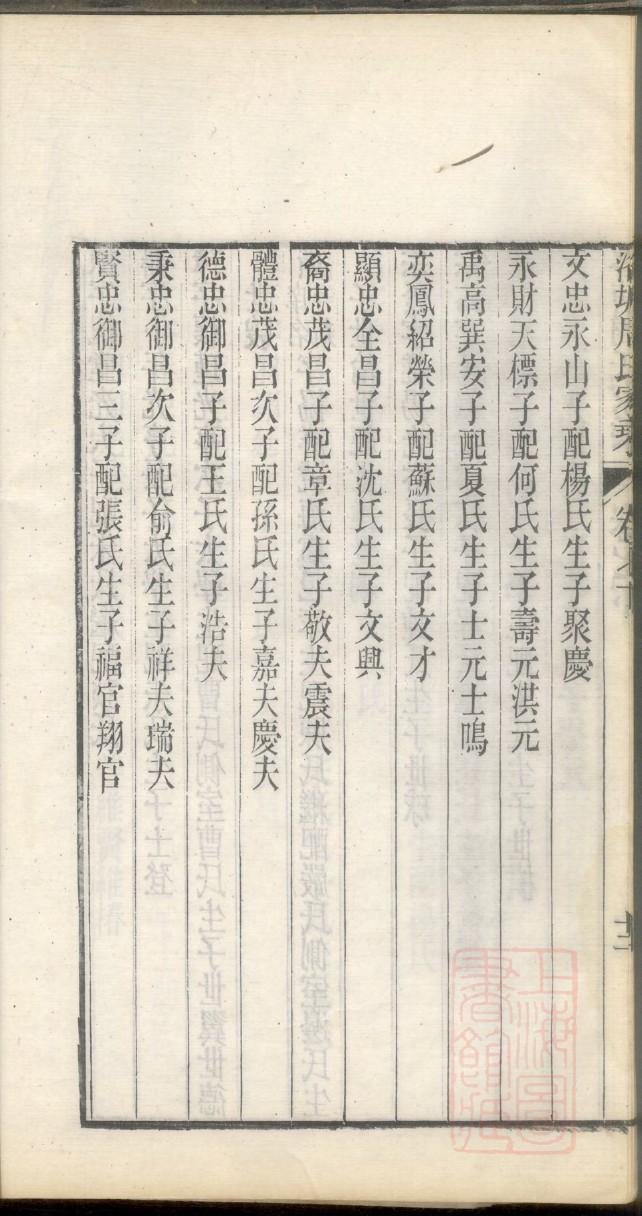 周氏家乘
文忠永山子配楊氏生子聚慶
永財天標子配何氏生子壽元淇元
禹高巽安子配夏氏生子士元士鳴
奕鳳紹榮子配蘇氏生子文才
顯忠全昌子配沈氏生子文興
裔忠茂昌子配章氏生子敬夫震夫
體忠茂昌次子配孫氏生子嘉夫慶夫
德忠御昌子配王氏生子浩夫
秉忠御昌次子配俞氏生子祥夫瑞夫
賢忠御昌三子配張氏生子福官翔官
上海圖
書館藏